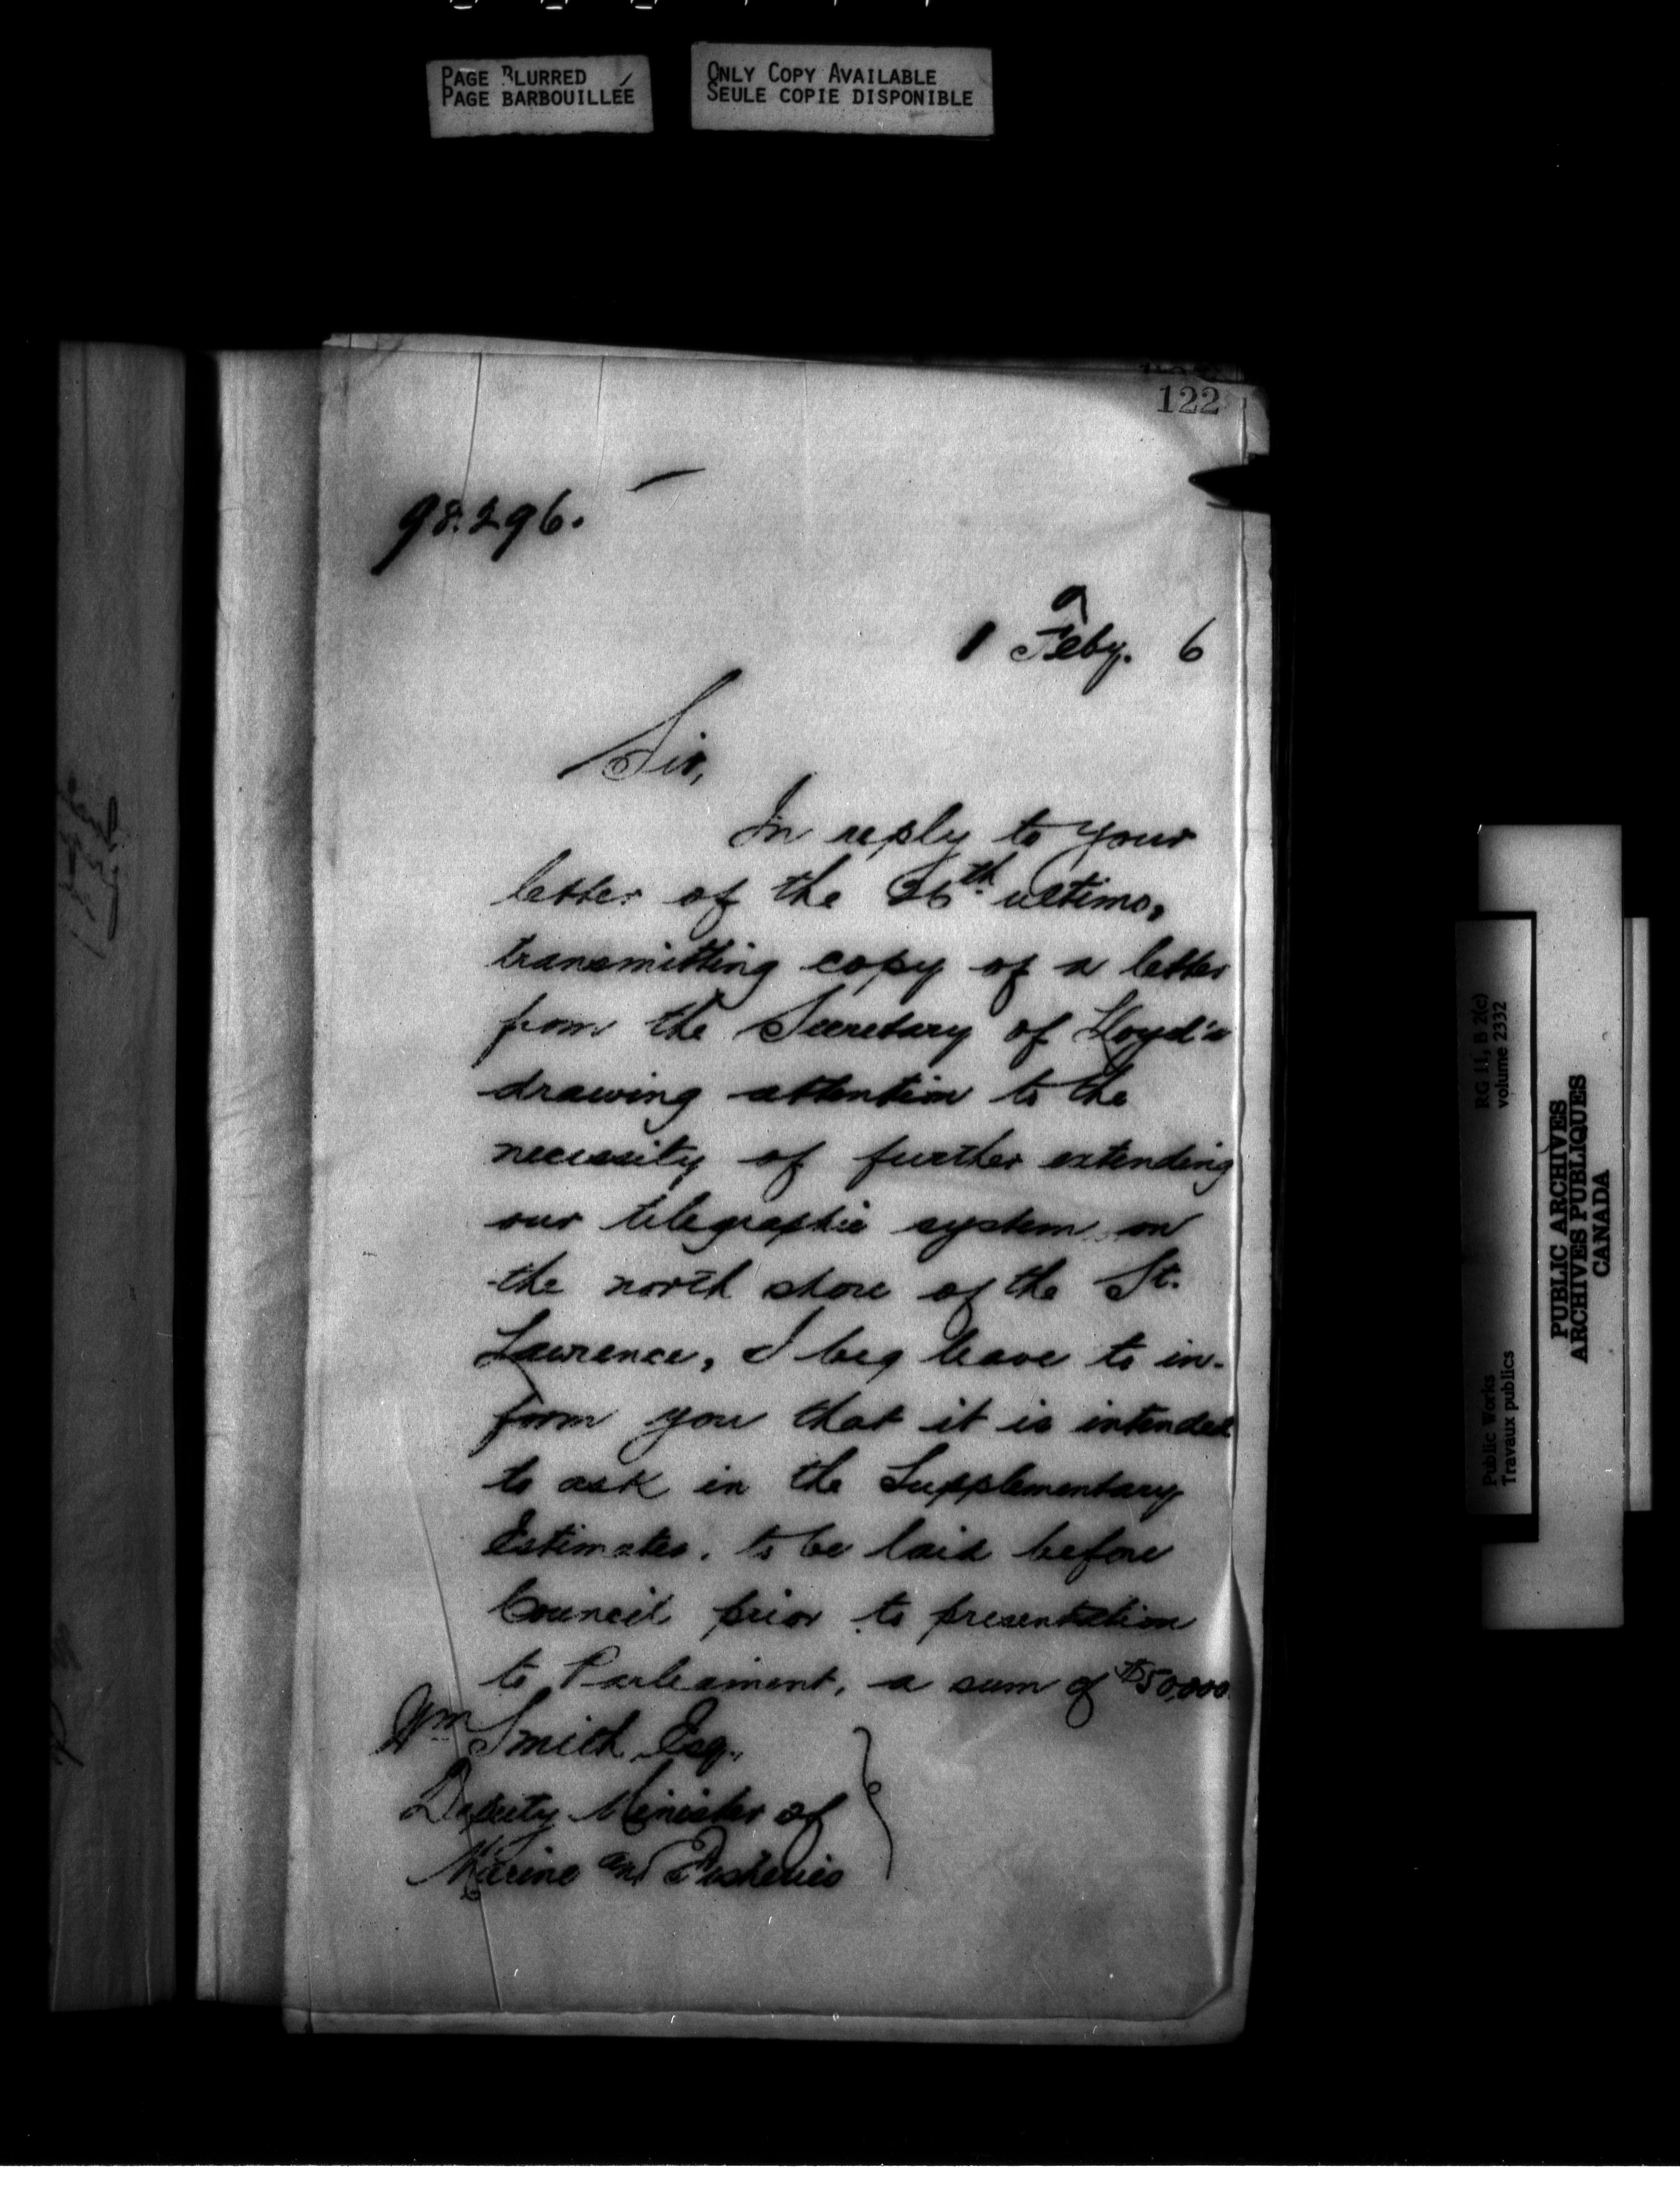 PAGE BLURRED
PAGE BARBOUILLÉE
ONLY COPY AVAILABLE
SEULE COPIE DISPONIBLE
122
98.296.
1 Feby. 6
Sir,
In reply to your
letter of the 26th ultimo,
transmitting copy of a letter
from the Secretary of Lloyd's
drawing attention to the
necessity of further extending
our telegraphic system on
the north shore of the St.
Lawrence, I beg leave to in-
form you that it is intended
to ask in the Supplementary
Estimates, to be laid before
Council prior to presentation
to Parliament, a sum of $50,000
Wm Smith, Esq.,
Deputy Minister of
Marine and Fisheries
RG 11, B 2(c)
volume 2332
Public Works
Travaux publics
PUBLIC ARCHIVES
ARCHIVES PUBLIQUES
CANADA